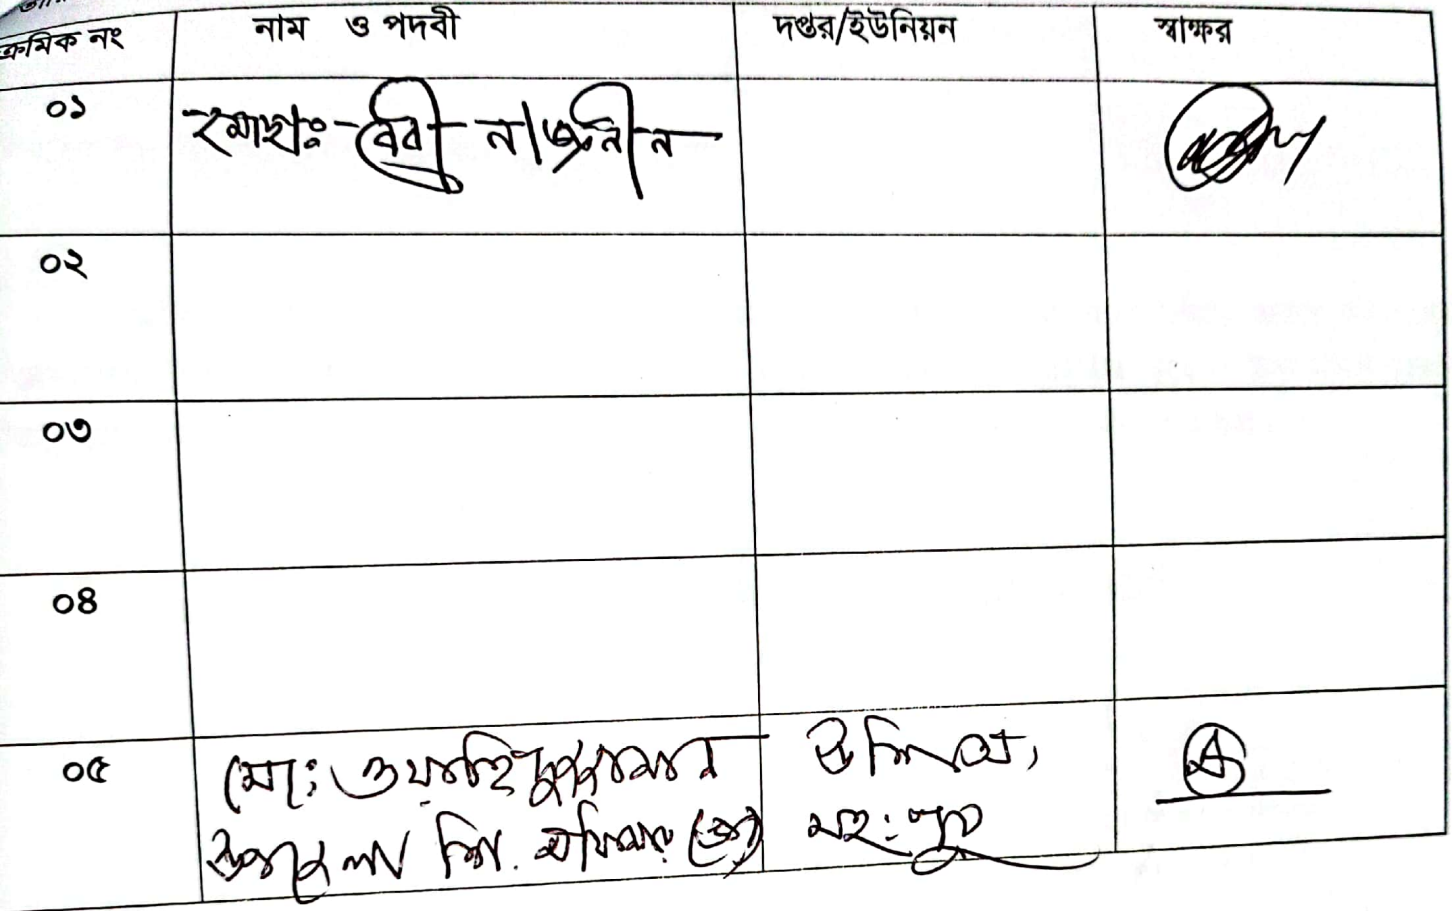 ক্রমিক নং নাম ও পদবী দপ্তর/ইউনিয়ন স্বাক্ষর
০১ মোছাঃ বেবী নাজনীন
০২
০৩
০৪
০৫ মোঃ ওয়াহিদুজ্জামান
উপজেলা শি. অফিসার